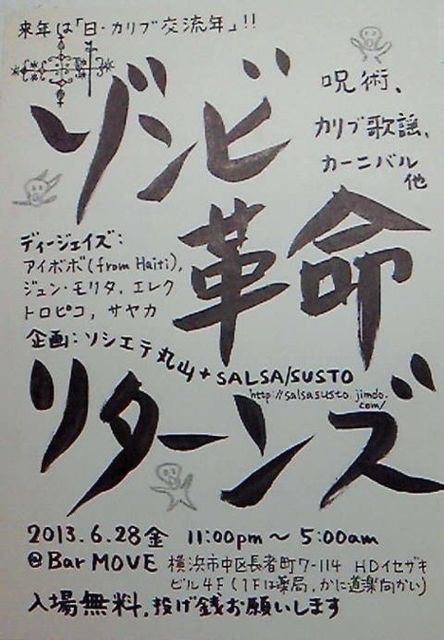 来年は「日・カリブ交流年」!!
ゾンビ
呪術、
カリブ歌謡、
カーニバル
他
革命
ディージェイズ：
アイボボ(from Haiti),
ジュン・モリタ, エレク
トロピコ, サヤカ
企画：ソシエテ丸山 + SALSA/SUSTO
http://salsasusto.jimdo.
com/
リターンズ
2013.6.28金 11:00pm～5:00am
@Bar MOVE 横浜市中区長者町7-114 HDイセザキ
ビル4F(1Fは薬局,かに道楽向かい)
入場無料,投げ銭お願いします